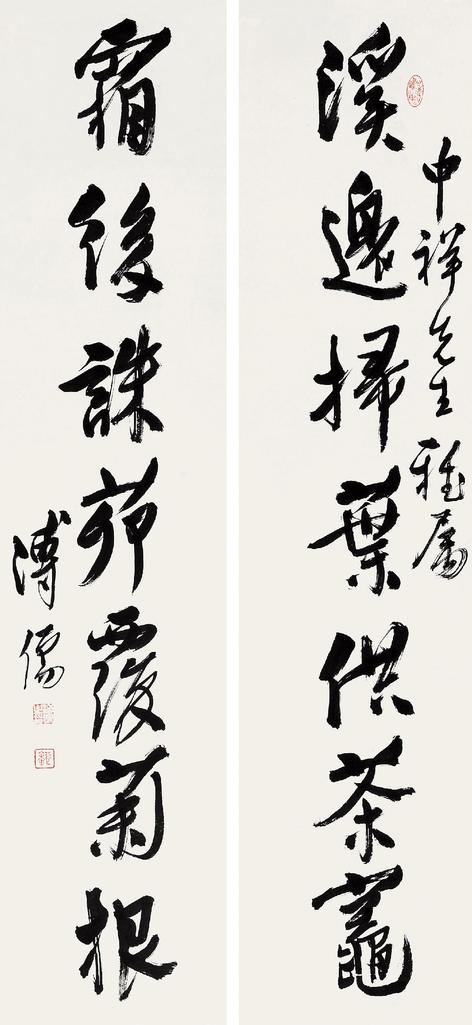 申祥先生雅屬
溪邊掃葉供茶竈
霜後誅茆覆菊根
溥儒